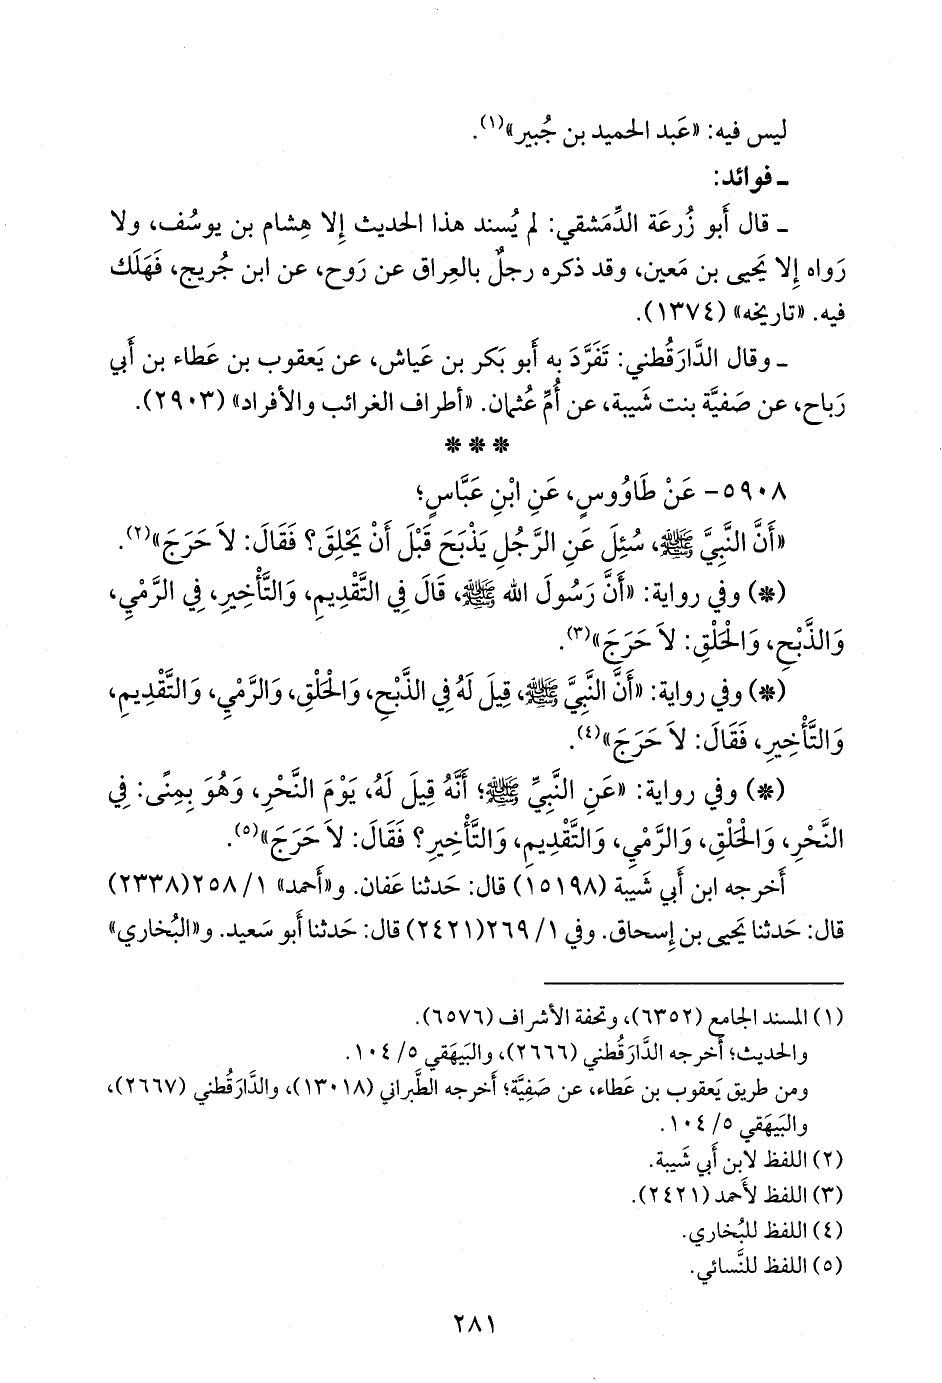 ليس فيه: «عَبد الحميد بن جُبير»(١).
ـ فوائد:
ـ قال أَبو زُرعَة الدِّمَشقي: لم يُسند هذا الحديث إِلا هِشام بن يوسُف، ولا
رَواه إِلا يَحيى بن مَعين، وقد ذكره رجلٌ بالعِراق عن رَوح، عن ابن جُريج، فَهَلَك
فيه. «تاريخه» (١٣٧٤).
ـ وقال الدَّارَقُطني: تَفَرَّدَ به أَبو بَكر بن عَياش، عن يَعقوب بن عَطاء بن أَبي
رَباح، عن صَفيَّة بنت شَيبة، عن أُمِّ عُثمان. «أطراف الغرائب والأفراد» (٢٩٠٣).
* * *
٥٩٠٨- عَنْ طَاوُوسٍ، عَنِ ابْنِ عَبَّاسٍ؛
«أَنَّ النَّبِيَّ ﷺ، سُئِلَ عَنِ الرَّجُلِ يَذْبَحَ قَبْلَ أَنْ يَحْلِقَ؟ فَقَالَ: لاَ حَرَجَ»(٢).
(*) وفي رواية: «أَنَّ رَسُولَ الله ﷺ، قَالَ فِي التَّقْدِيمِ، وَالتَّأْخِيرِ، فِي الرَّمْيِ،
وَالذَّبْحِ، وَالْحَلْقِ: لاَ حَرَجَ»(٣).
(*) وفي رواية: «أَنَّ النَّبِيَّ ﷺ، قِيلَ لَهُ فِي الذَّبْحِ، وَالْحَلْقِ، وَالرَّمْيِ، وَالتَّقْدِيمِ،
وَالتَّأْخِيرِ، فَقَالَ: لاَ حَرَجَ»(٤).
(*) وفي رواية: «عَنِ النَّبِيِّ ﷺ؛ أَنَّهُ قِيلَ لَهُ، يَوْمَ النَّحْرِ، وَهُوَ بِمِنًى: فِي
النَّحْرِ، وَالْحَلْقِ، وَالرَّمْيِ، وَالتَّقْدِيمِ، وَالتَّأْخِيرِ؟ فَقَالَ: لاَ حَرَجَ»(٥).
أَخرجه ابن أَبي شَيبة (١٥١٩٨) قال: حَدثنا عَفان. و«أَحمد» ١/ ٢٥٨(٢٣٣٨)
قال: حَدثنا يَحيى بن إِسحاق. وفي ١/ ٢٦٩(٢٤٢١) قال: حَدثنا أَبو سَعيد. و«البُخاري»
(١) المسند الجامع (٦٣٥٢)، وتحفة الأشراف (٦٥٧٦).
والحديث؛ أَخرجه الدَّارَقُطني (٢٦٦٦)، والبَيهَقي ٥/ ١٠٤.
ومن طريق يَعقوب بن عَطاء، عن صَفِيَّة؛ أَخرجه الطَّبراني (١٣٠١٨)، والدَّارَقُطني (٢٦٦٧)،
والبَيهَقي ٥/ ١٠٤.
(٢) اللفظ لابن أَبي شَيبة.
(٣) اللفظ لأَحمد (٢٤٢١).
(٤) اللفظ للبُخاري.
(٥) اللفظ للنَّسائي.
٢٨١